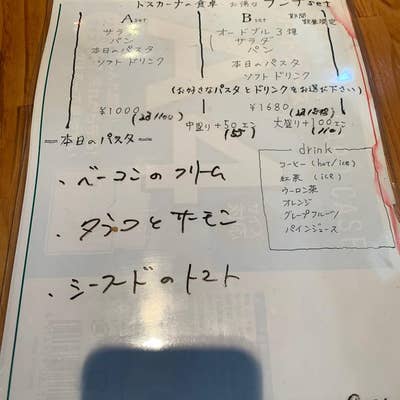 トスカーナの食卓 お得な ランチset
A set
サラダ
パン
本日のパスタ
ソフトドリンク
¥1000 (税込1100)
B set 期間 数量限定
オードブル3種
サラダ
パン
本日のパスタ
ソフトドリンク
(お好きなパスタとドリンクをお選び下さい)
¥1680
中盛り+50エン (55) 大盛り+100エン (110)
=本日のパスタ=
・ベーコンのクリーム
・タラコとサーモン
・シーフードのトマト
drink
コーヒー (hot/ice)
紅茶 (ice)
ウーロン茶
オレンジ
グレープフルーツ
パインジュース